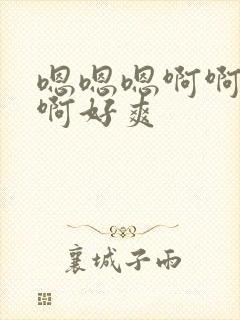 嗯嗯嗯啊啊
啊好爽
襄城子雨